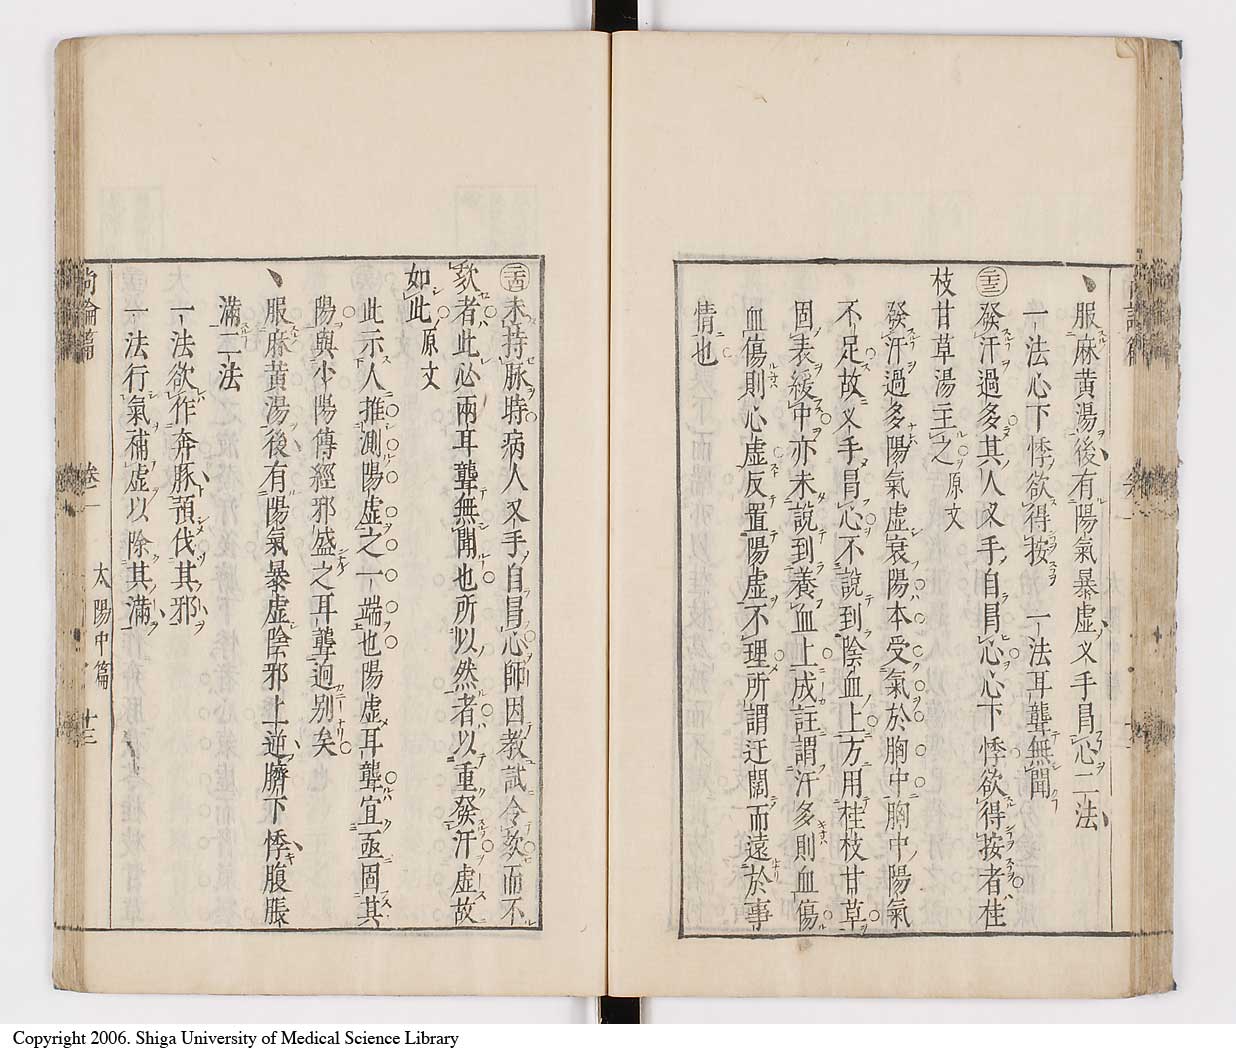 服麻黃湯後有陽氣暴虛叉手冒心二法
一法心下悸欲得按　一法耳聾無聞
㊁㊂發汗過多其人叉手自冒心心下悸欲得按者桂
枝甘草湯主之原文
發汗過多陽氣虛衰陽本受氣於胸中胸中陽氣
不足故叉手冒心不說到陰血上方用桂枝甘草
固表緩中亦未說到養血上成註謂汗多則血傷
血傷則心虛反置陽虛不理所謂迂闊而遠於事
情也
未持脉時病人叉手自冒心師因教試令欬而不
欬者此必兩耳聾無聞也所以然者以重發汗虛故
如此原文
此示人推測陽虛之一端也陽虛耳聾宜亟固其
陽與少陽傳經邪盛之耳聾迥別矣
服麻黃湯後有陽氣暴虛陰邪上逆臍下悸腹脹
滿二法
一法欲作奔豚預伐其邪
一法行氣補虛以除其滿
尚論篇　卷一　太陽中篇　廿三
Copyright 2006. Shiga University of Medical Science Library